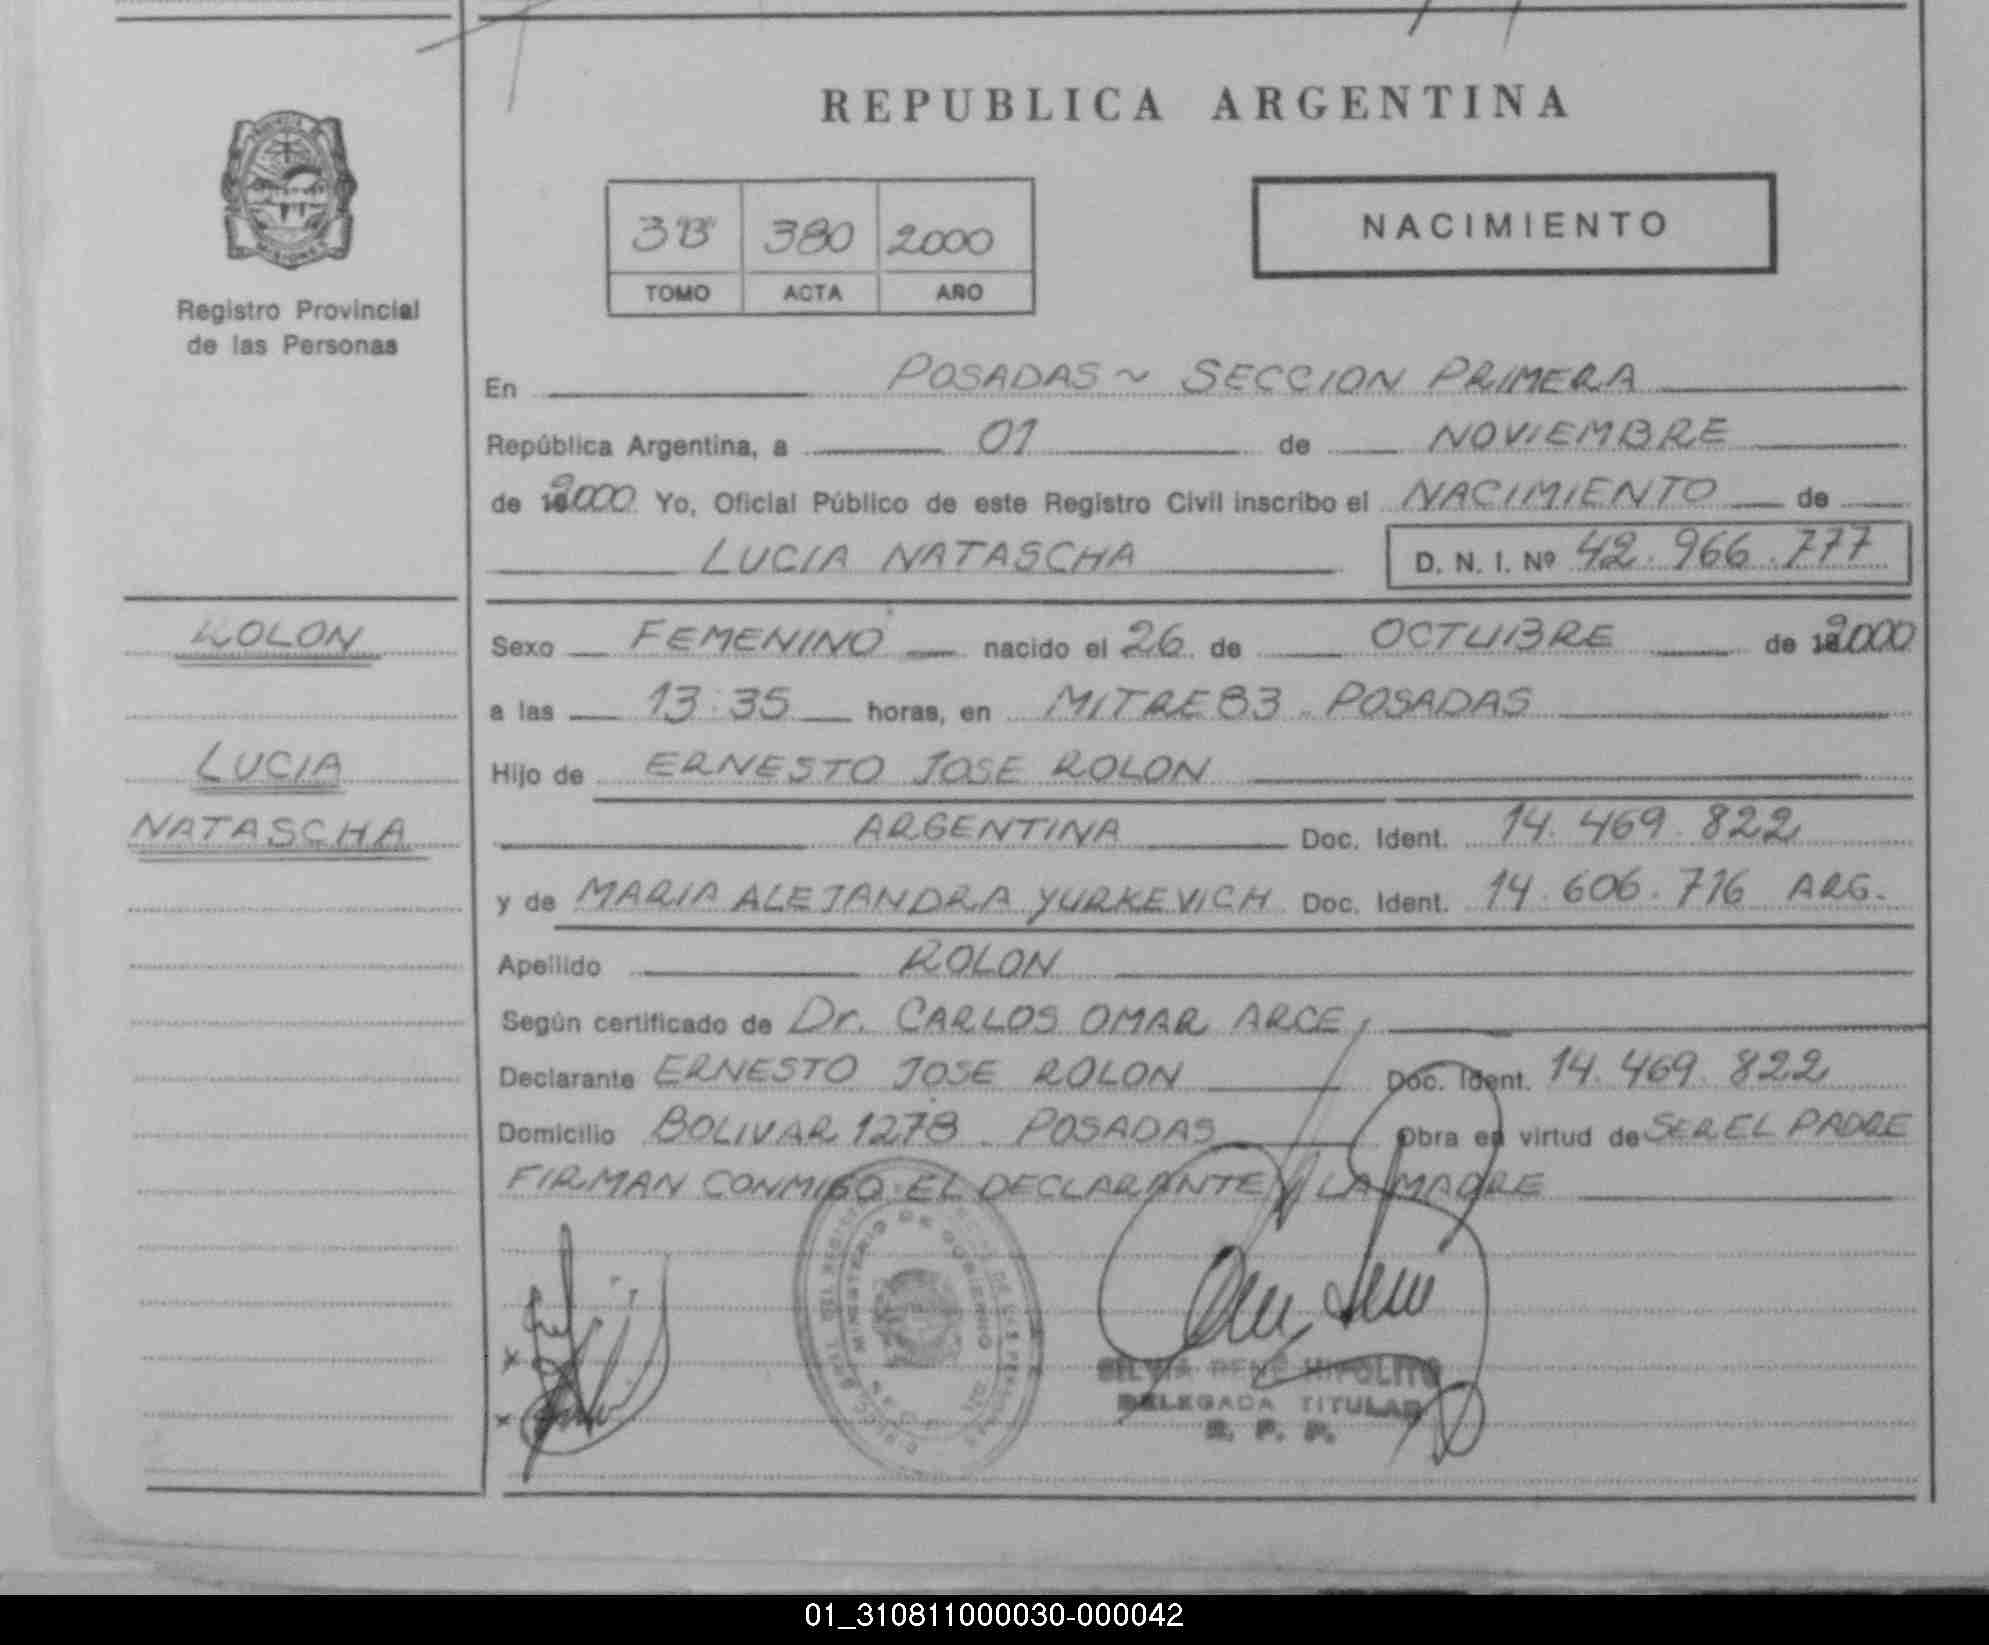 REPUBLICA ARGENTINA
3"B" 380 2000
NACIMIENTO
TOMO ACTA AÑO
Registro Provincial
de las Personas
En POSADAS ~ SECCION PRIMERA
República Argentina, a 01 de NOVIEMBRE
de 2000 Yo, Oficial Público de este Registro Civil inscribo el NACIMIENTO de
LUCIA NATASCHA D. N. I. Nº 42.966.777
ROLON
Sexo FEMENINO nacido el 26 de OCTUBRE de 2000
a las 13:35 horas, en MITRE 83 - POSADAS
LUCIA
Hijo de ERNESTO JOSE ROLON
NATASCHA
ARGENTINA Doc. Ident. 14.469.822
y de MARIA ALEJANDRA YURKEVICH Doc. Ident. 14.606.716 ARG.
Apellido ROLON
Según certificado de Dr. CARLOS OMAR ARCE,
Declarante ERNESTO JOSE ROLON Doc. Ident. 14.469.822
Domicilio BOLIVAR 1278 - POSADAS Obra en virtud de SER EL PADRE
FIRMAN CONMIGO EL DECLARANTE Y LA MADRE
MINISTERIO DE GOBIERNO
SILVIA RENE HIPOLITO
DELEGADA TITULAR
R. P. P.
01_310811000030-000042